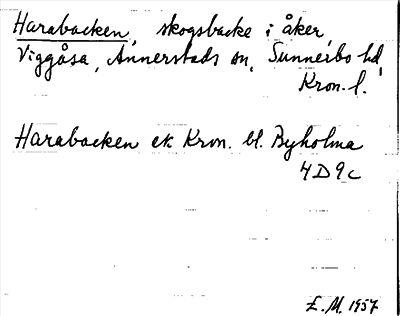 Harabacken, skogsbacke i åker,
Viggåsa, Annerstads sn, Sunnerbo hd,
Kron. l.
Harabacken ek Kron. bl. Byholma
4D9c
E.M. 1957